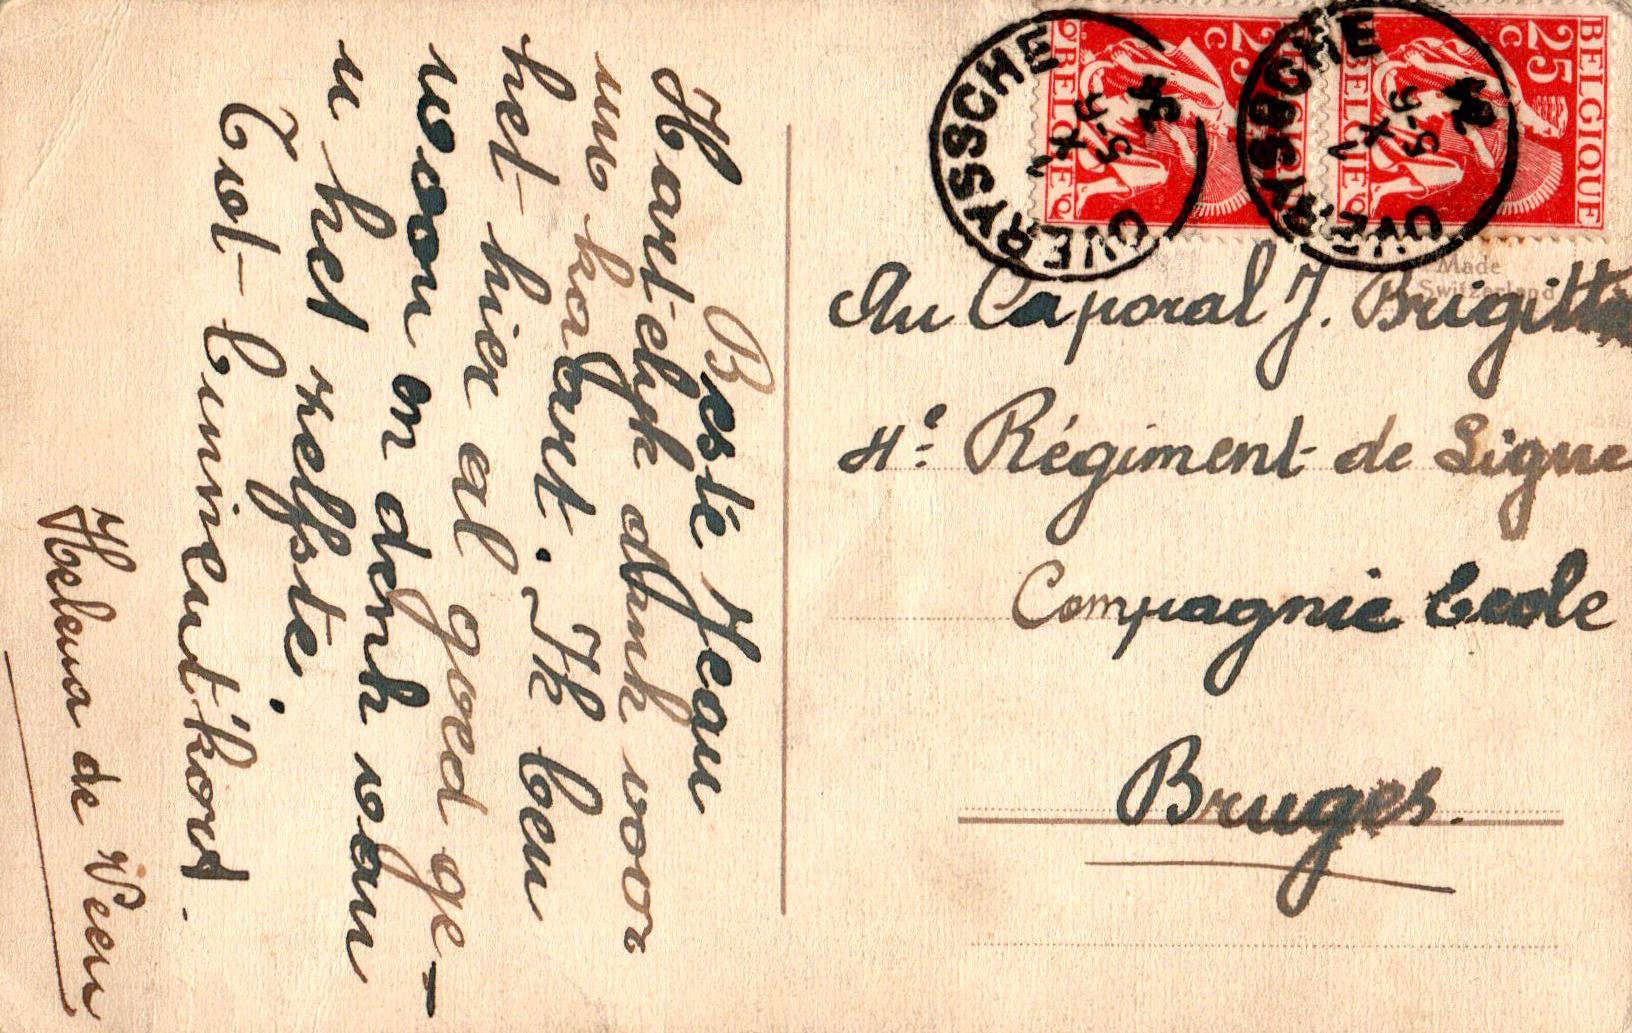 Beste Jean
Hartelijk dank voor
uw kaart. Ik ben
het hier al goed ge-
woon en denk van
u het zelfste.
Tot binnent'kort.
Helena de Veen
BELGIQUE
25 c
BELGIQUE
25 c
OVERYSSCHE
OVERYSSCHE
Made
Switzerland
Au Caporal J. Brigitte
4e Régiment de Ligne
Compagnie Ecole
Bruges.